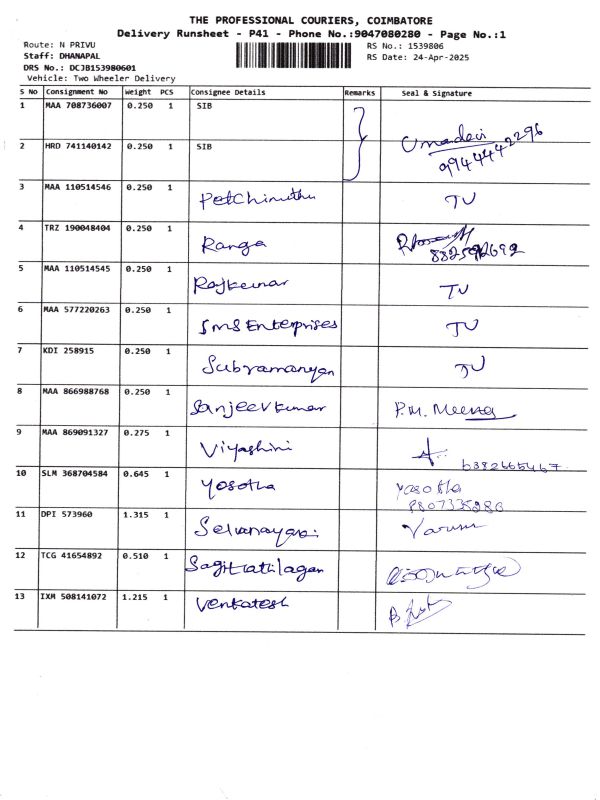 THE PROFESSIONAL COURIERS, COIMBATORE
Delivery Runsheet - P41 - Phone No.:9047080280 - Page No.:1
Route: N PRIVU RS No.: 1539806
Staff: DHANAPAL RS Date: 24-Apr-2025
DRS No.: DCJB153980601
Vehicle: Two Wheeler Delivery
S No Consignment No Weight PCS Consignee Details Remarks Seal & Signature
1 MAA 708736007 0.250 1 SIB
Umadevi
9944442296
2 HRD 741140142 0.250 1 SIB
3 MAA 110514546 0.250 1 Petchimuthu TU
4 TRZ 190048404 0.250 1 Ranga
5 MAA 110514545 0.250 1 Rajkumar TU
6 MAA 577220263 0.250 1 SMS Enterprises TU
7 KDI 258915 0.250 1 Subramanyan TU
8 MAA 866988768 0.250 1 Sanjeevkumar P.M. Meena
9 MAA 869091327 0.275 1 Viyashini
6382665467
10 SLM 368704584 0.645 1 Yosotha Yasotha
11 DPI 573960 1.315 1 Varun
12 TCG 41654892 0.510 1
13 IXM 508141072 1.215 1 Venkatesh